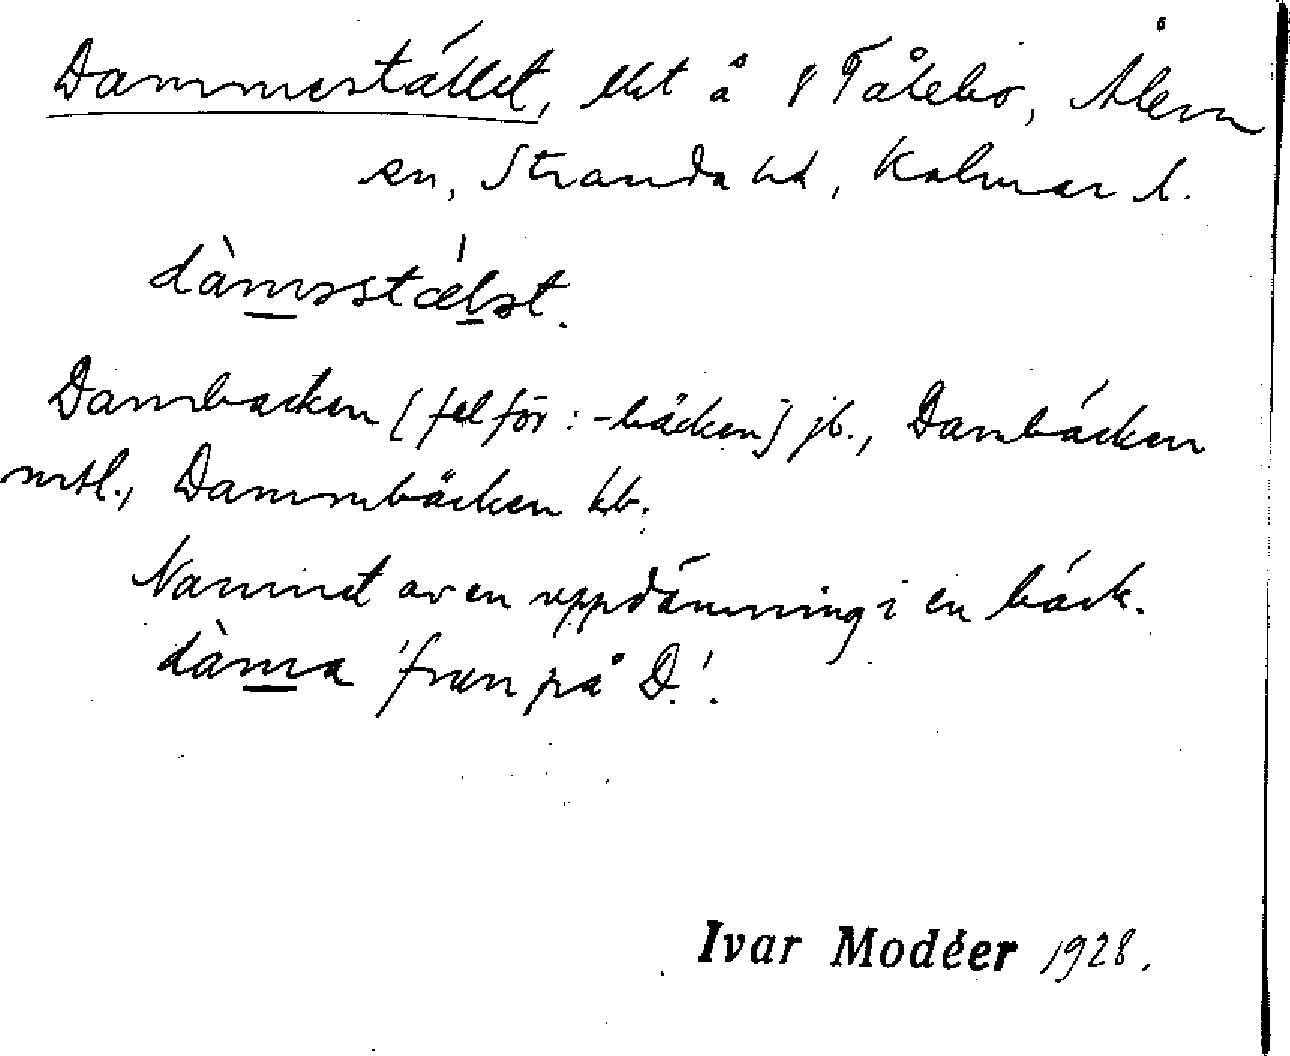 Dammestället, lht å § Tålebo, Ålem
sn, Stranda hd, Kalmar l.
dàmɜstǽlɜt.
Dambacken [fel för: -bäcken] jb., Dambäcken
mtl., Dammbäcken kb.
Namnet av en uppdämning i en bäck.
dàma 'fran på D.'.
Ivar Modéer 1928.